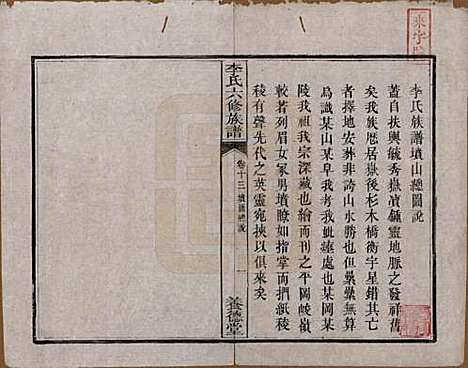 李氏族譜墳山總圖說
蓋自扶輿毓秀嶽瀆鍾靈地脈之發祥舊
矣我族歷居嶽後杉木橋衡宇星錯其亡
者擇地安葬非誇山水勝也但纍纍無算
烏識某山某阜我此瘞處也某岡某
陵我祖我宗深藏也繪而刊之平岡峻嶺
較若列眉女冢男墳瞭如指掌而捫稜
稜有聲先代之英靈宛挾以俱來矣
李氏六修族譜
卷十三 墳圖總說
一
養德堂